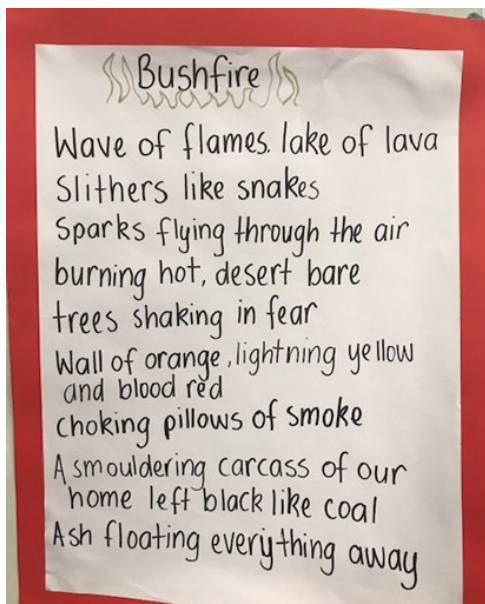 Bushfire
Wave of flames. lake of lava
Slithers like snakes
Sparks flying through the air
burning hot, desert bare
trees shaking in fear
Wall of orange, lightning yellow
and blood red
choking pillows of smoke
A smouldering carcass of our
home left black like coal
Ash floating everything away